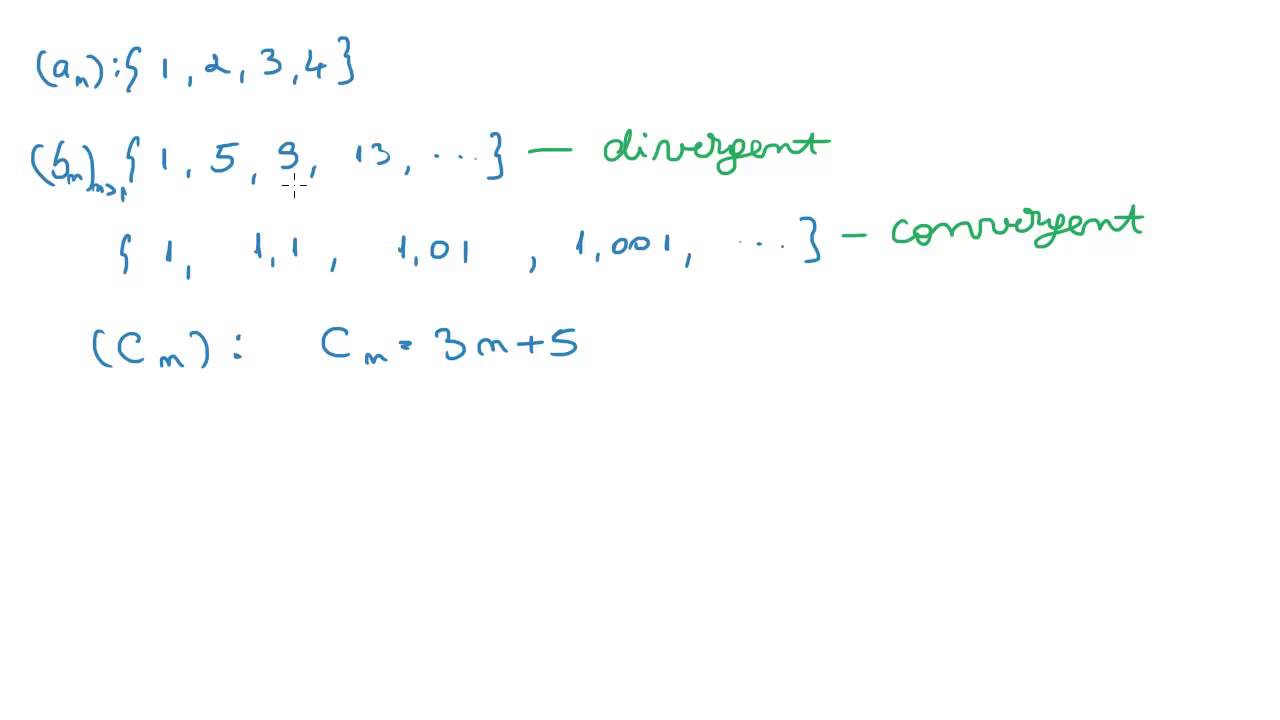 (an): { 1, 2, 3, 4 }
(bn)n≥1 { 1, 5, 9, 13, ... } — divergent
{ 1, 1,1, 1,01, 1,001, ... } — convergent
(Cn): Cn = 3n+5